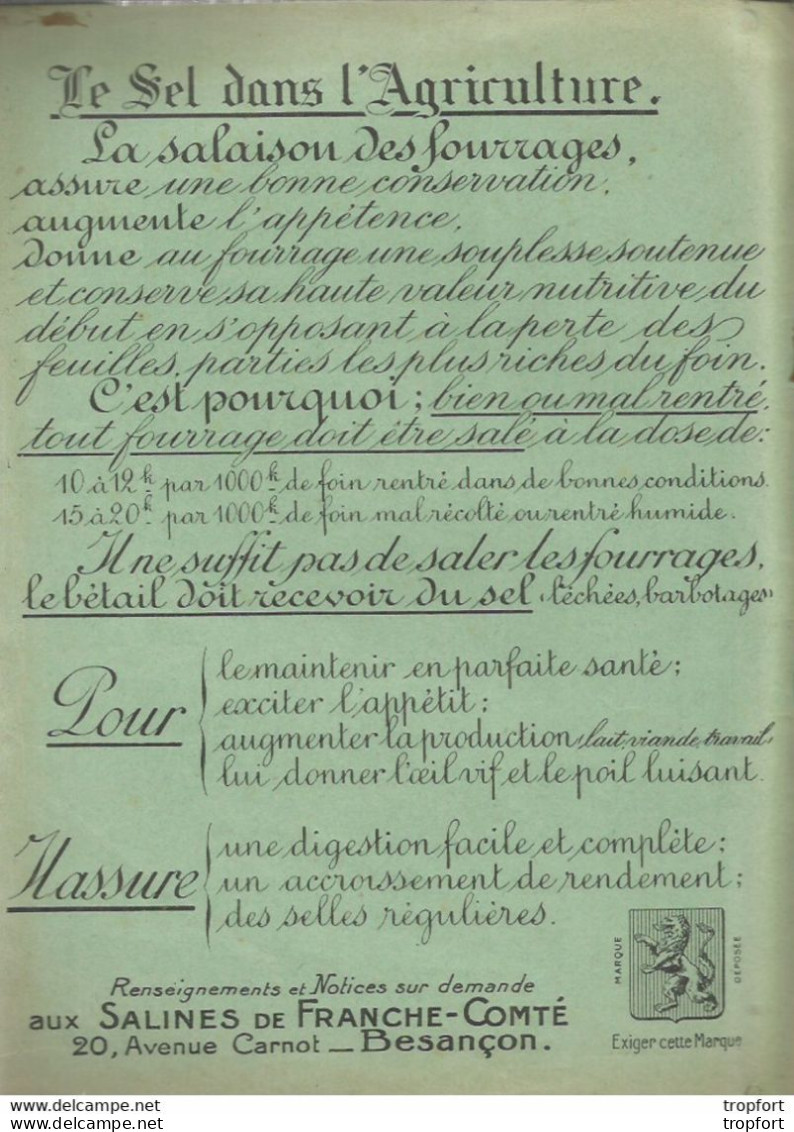 Le Sel dans l'Agriculture.
La salaison des fourrages,
assure une bonne conservation,
augmente l'appétence,
donne au fourrage une souplesse soutenue
et conserve sa haute valeur nutritive du
début en s'opposant à la perte des
feuilles, parties les plus riches du foin.
C'est pourquoi; bien ou mal rentré,
tout fourrage doit être salé à la dose de:
10 à 12k par 1000k de foin rentré dans de bonnes conditions.
15 à 20k par 1000k de foin mal récolté ou rentré humide.
Il ne suffit pas de saler les fourrages,
le bétail doit recevoir du sel (léchées, barbotages)
Pour
le maintenir en parfaite santé;
exciter l'appétit;
augmenter la production (lait, viande, travail)
lui donner l'œil vif et le poil luisant.
Il assure
une digestion facile et complète;
un accroissement de rendement;
des selles régulières.
Renseignements et Notices sur demande
aux SALINES DE FRANCHE-COMTÉ
20, Avenue Carnot _ Besançon.
MARQUE
DÉPOSÉE
Exiger cette Marque
tropfort
tropfort
tropfort
tropfort